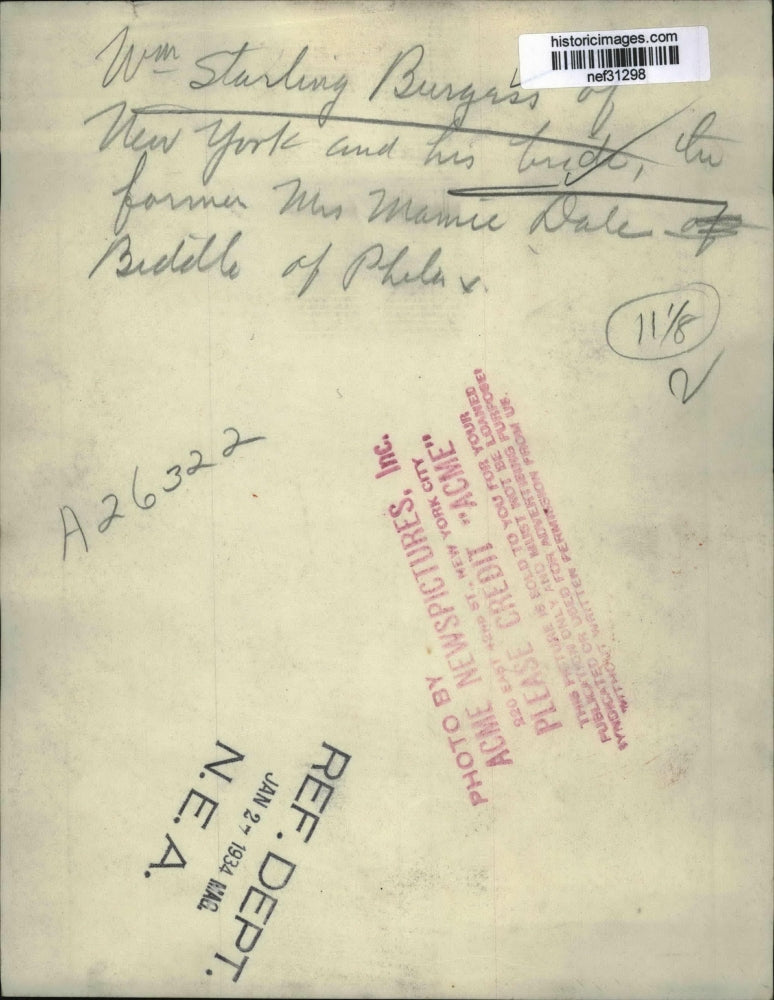 historicimages.com
nef31298
Wm Starling Burgess of
New York and his bride, the
former Mrs Mamie Dale of
Biddle of Phila x.
11 1/8
2
A26322
PHOTO BY
ACME NEWSPICTURES, Inc.
220 EAST 42ND ST., NEW YORK CITY
PLEASE CREDIT "ACME"
THIS PICTURE IS SOLD TO YOU FOR YOUR
PUBLICATION ONLY AND MUST NOT BE LOANED,
SYNDICATED OR USED FOR ADVERTISING PURPOSES
WITHOUT WRITTEN PERMISSION FROM US.
REF. DEPT.
JAN 27 1934 MAG.
N.E.A.